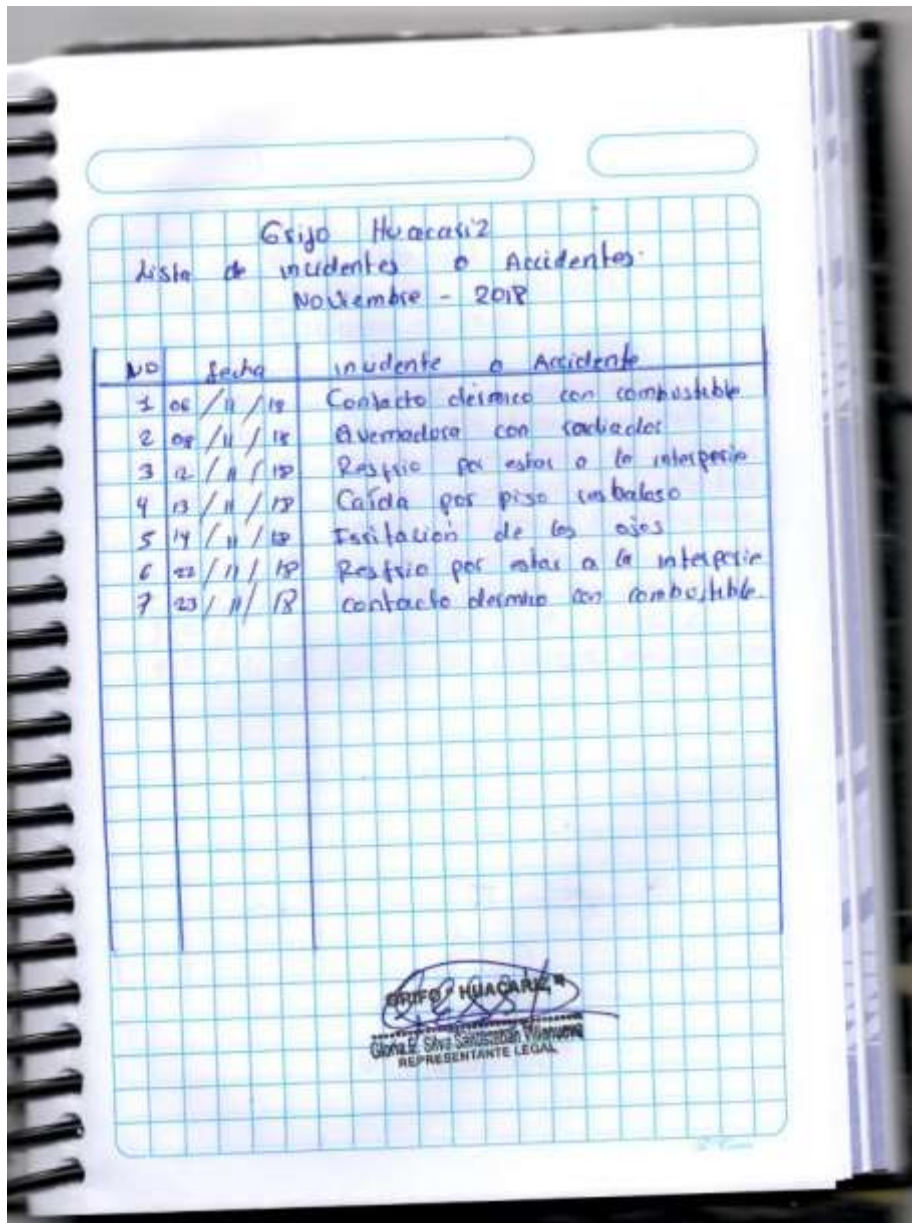 Grifo Huacariz
Lista de incidentes o Accidentes.
Noviembre - 2018
NO fecha incidente o Accidente
1 06/11/18 Contacto dérmico con combustible
2 08/11/18 Quemadora con radiador
3 12/11/18 Resfrio por estar a la interperie
4 13/11/18 Caída por piso resbaloso
5 14/11/18 Irritación de los ojos
6 22/11/18 Resfrio por estar a la interperie
7 23/11/18 contacto dermico con combustible.
GRIFO "HUACARIZ"
Gloria E. Silva Santisteban Villanueva
REPRESENTANTE LEGAL